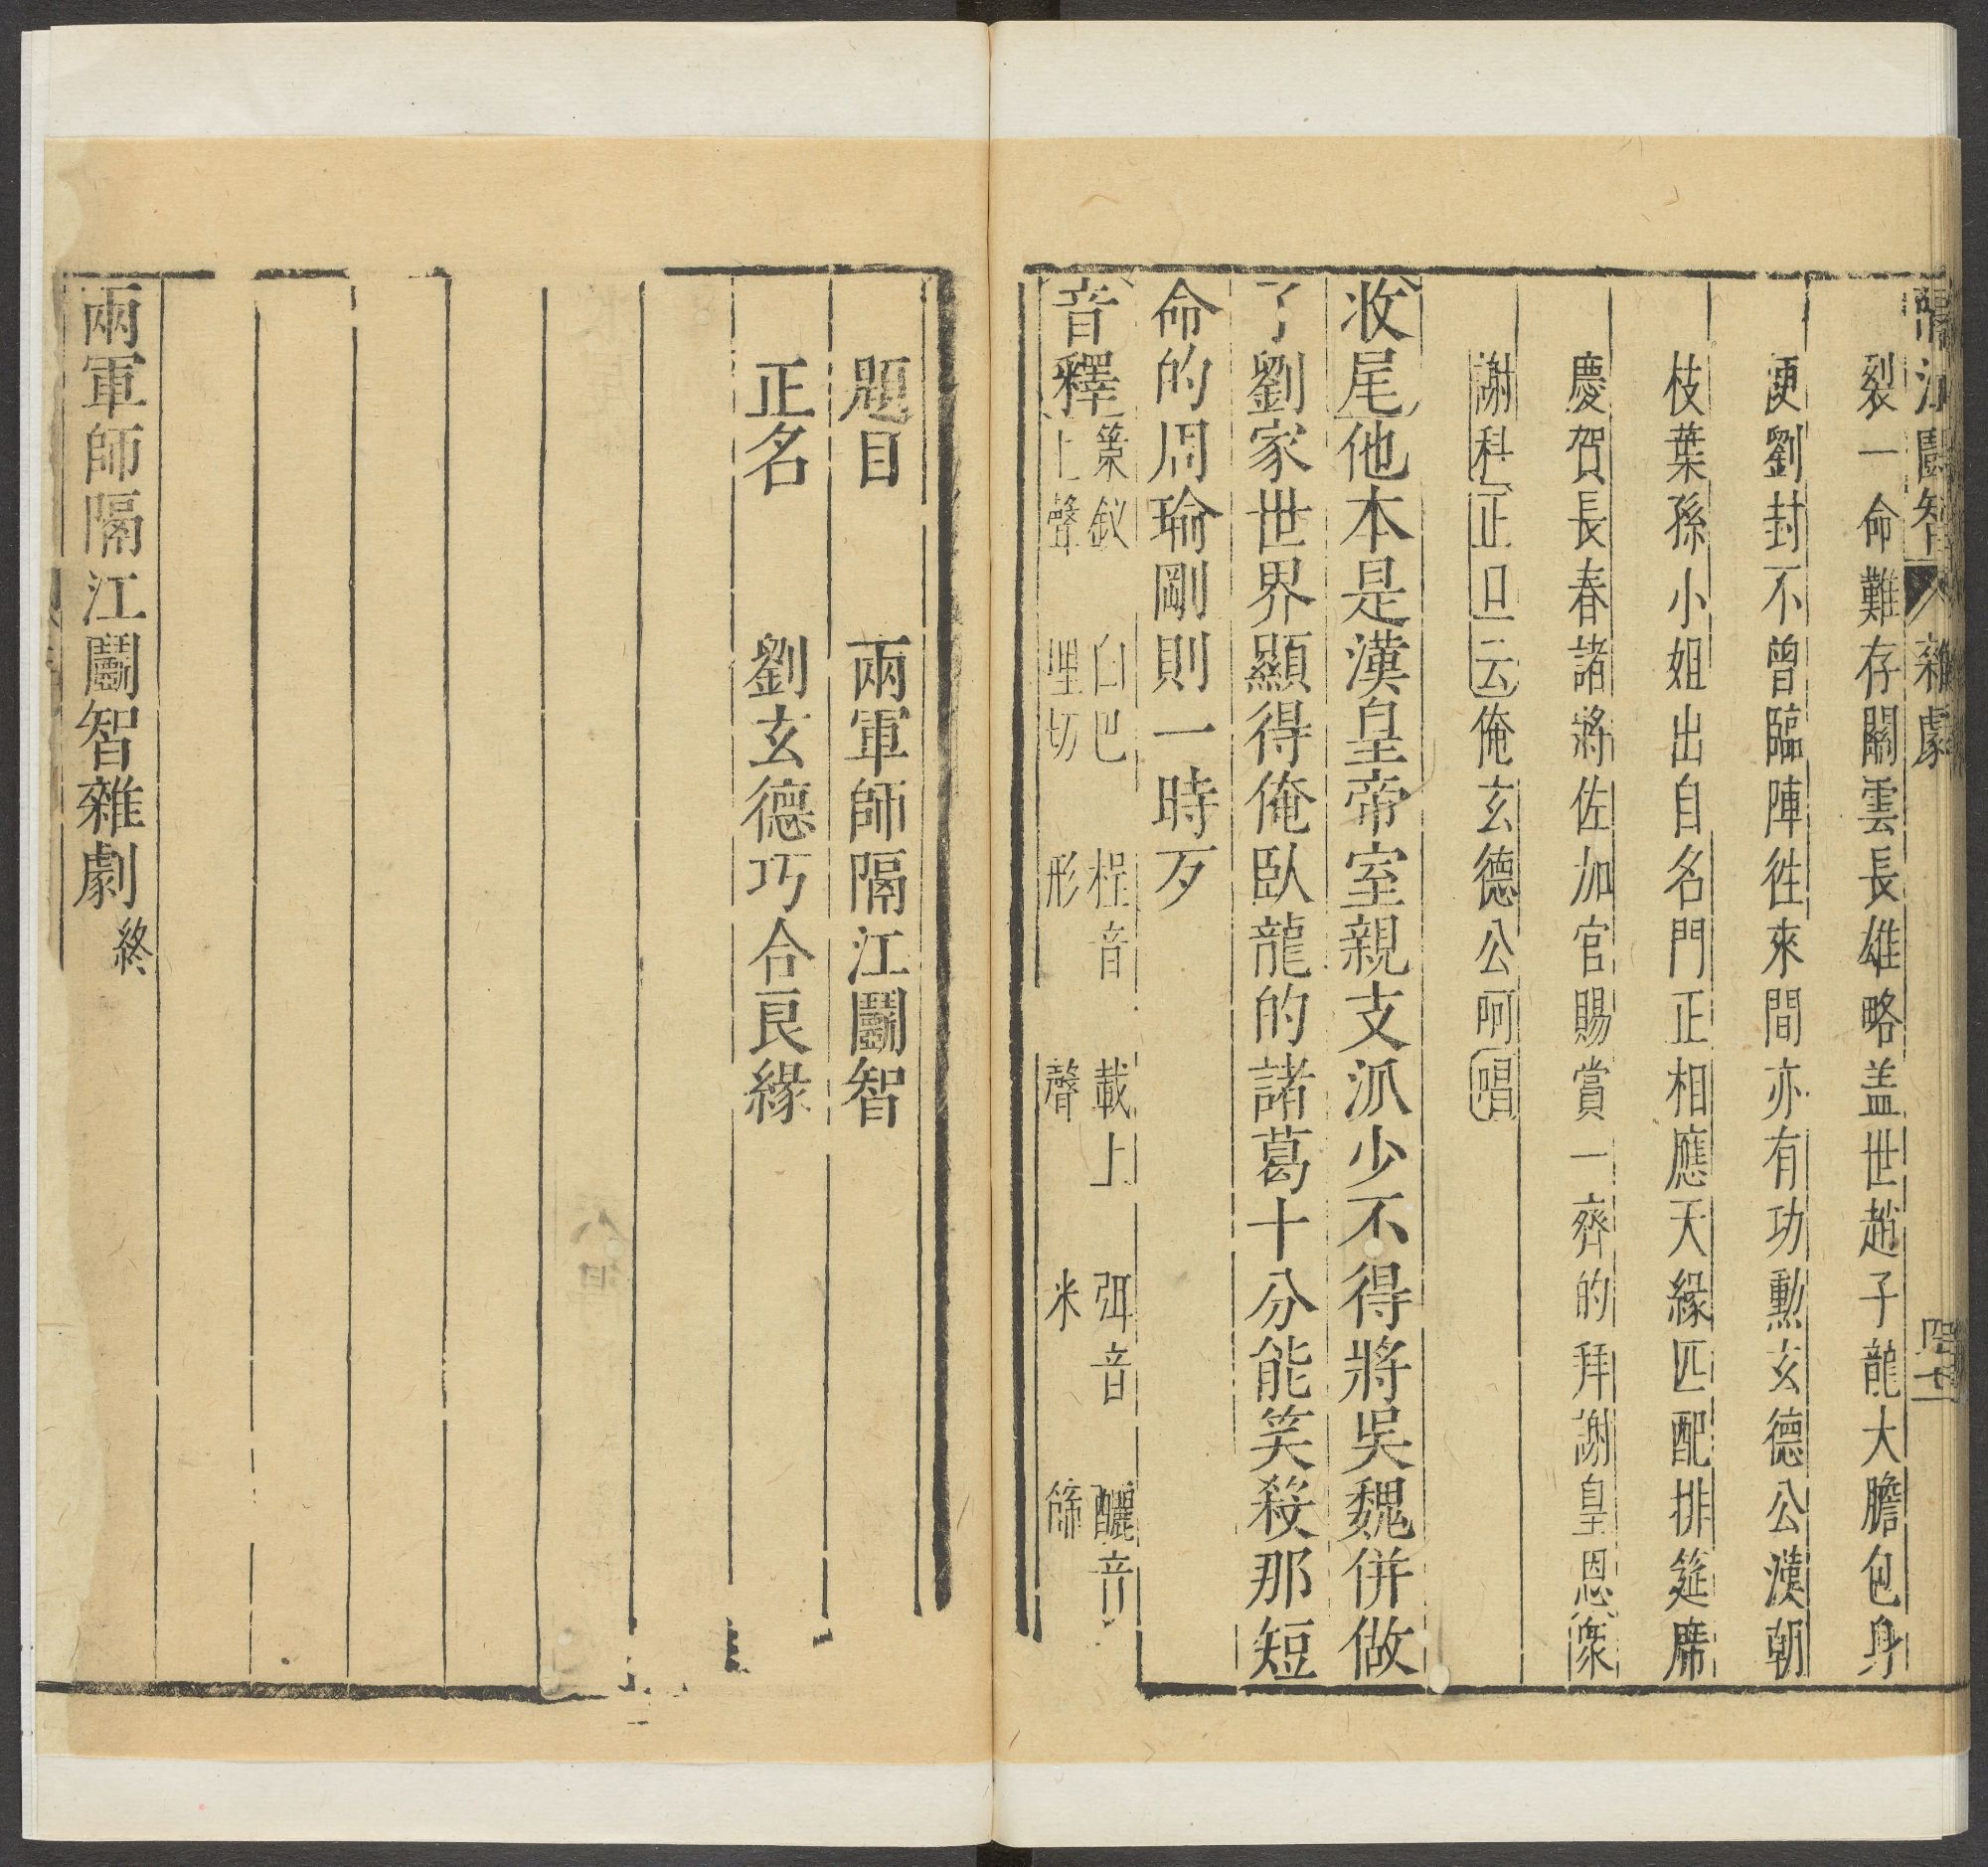 隔江鬪智 雜劇 四十一
裂一命難存關雲長雄略盖世趙子龍大膽包身
便劉封不曾臨陣徃來間亦有功勲玄德公漢朝
枝葉孫小姐出自名門正相應天緣匹配排筵席
慶賀長春諸將佐加官賜賞一齊的拜謝皇恩衆
謝科正旦云俺玄德公呵唱
收尾他本是漢皇帝室親支派少不得將吳魏併做
了劉家世界顯得俺臥龍的諸葛十分能笑殺那短
命的周瑜剛則一時歹
音釋 策釵上聲 白巴埋切 桯音形 載上聲 弭音米 釃音篩
題目 兩軍師隔江鬪智
正名 劉玄德巧合良緣
兩軍師隔江鬪智雜劇終